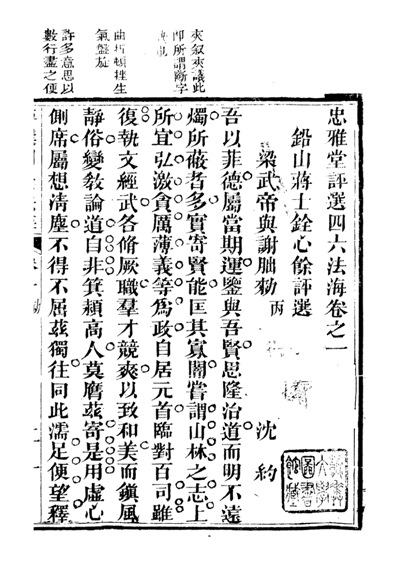 忠雅堂評選四六法海卷之一
鉛山蔣士銓心餘評選
梁武帝與謝朏勑
丙
沈約
吾以菲德屬當期運鑒與吾賢思隆治道而明不遠
燭所蔽者多實寄賢能匡其寡闇嘗謂山林之志上
所宜弘激貪厲薄義等爲政自居元首臨對百司雖
復執文經武各脩厥職羣才競爽以致和美而鎭風
靜俗變敎論道自非箕潁高人莫膺茲寄是用虛心
側席屬想清塵不得不屈茲獨往同此濡足便望釋
夾叙夾議此
卽所謂斷字
曲折頓挫生
氣盤旋
許多意思以
數行盡之便